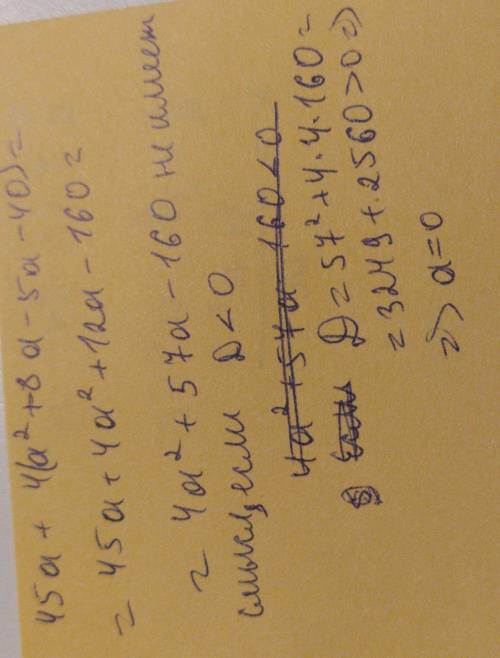 45a + 4(a²+8a-5a-40)=
= 45a + 4a²+12a-160=
= 4a²+57a-160 не имеет
смысл, если D<0
4a²+57a-160<0
D=57²+4·4·160=
=3249+2560>0=>
=> a=0